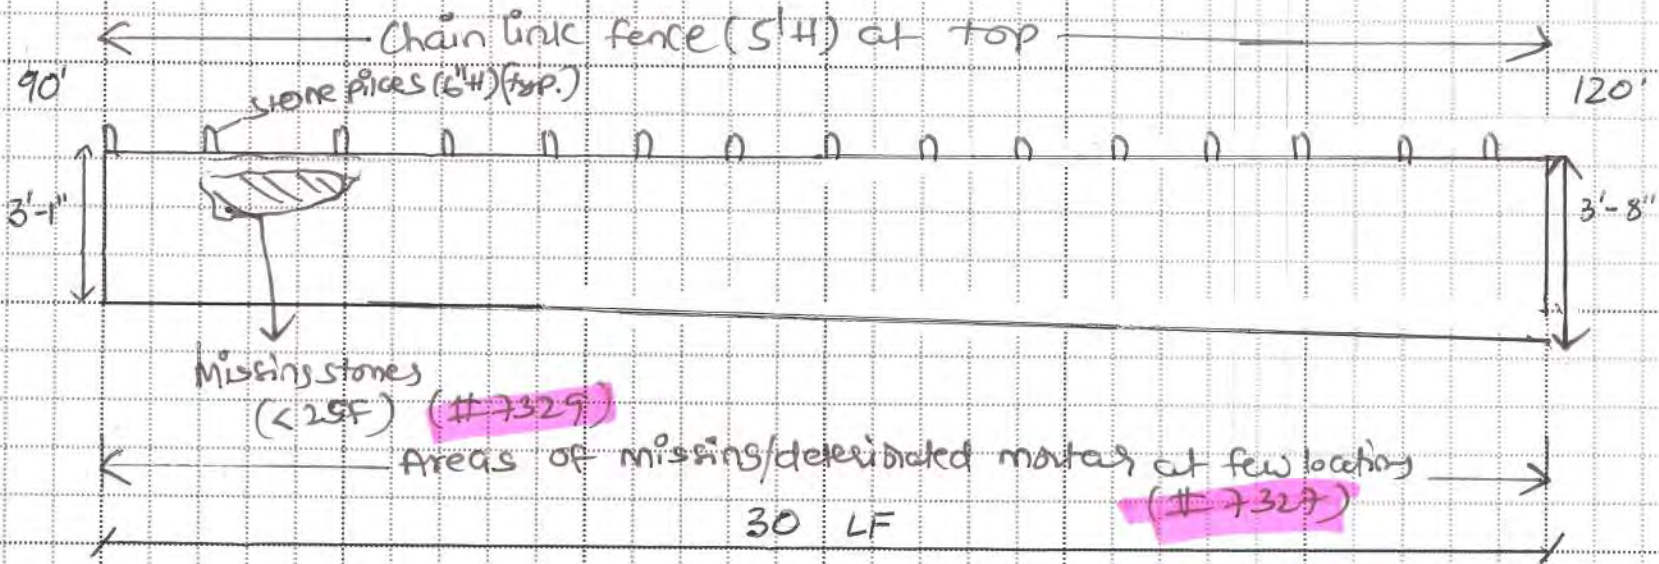 Chain link fence (5'H) at top
90'
stone pices (6"H)(typ.)
120'
3'-1"
3'-8"
Missing stones
(<2SF) (#7329)
Areas of missing/deteriorated mortar at few locations
(#7327)
30 LF